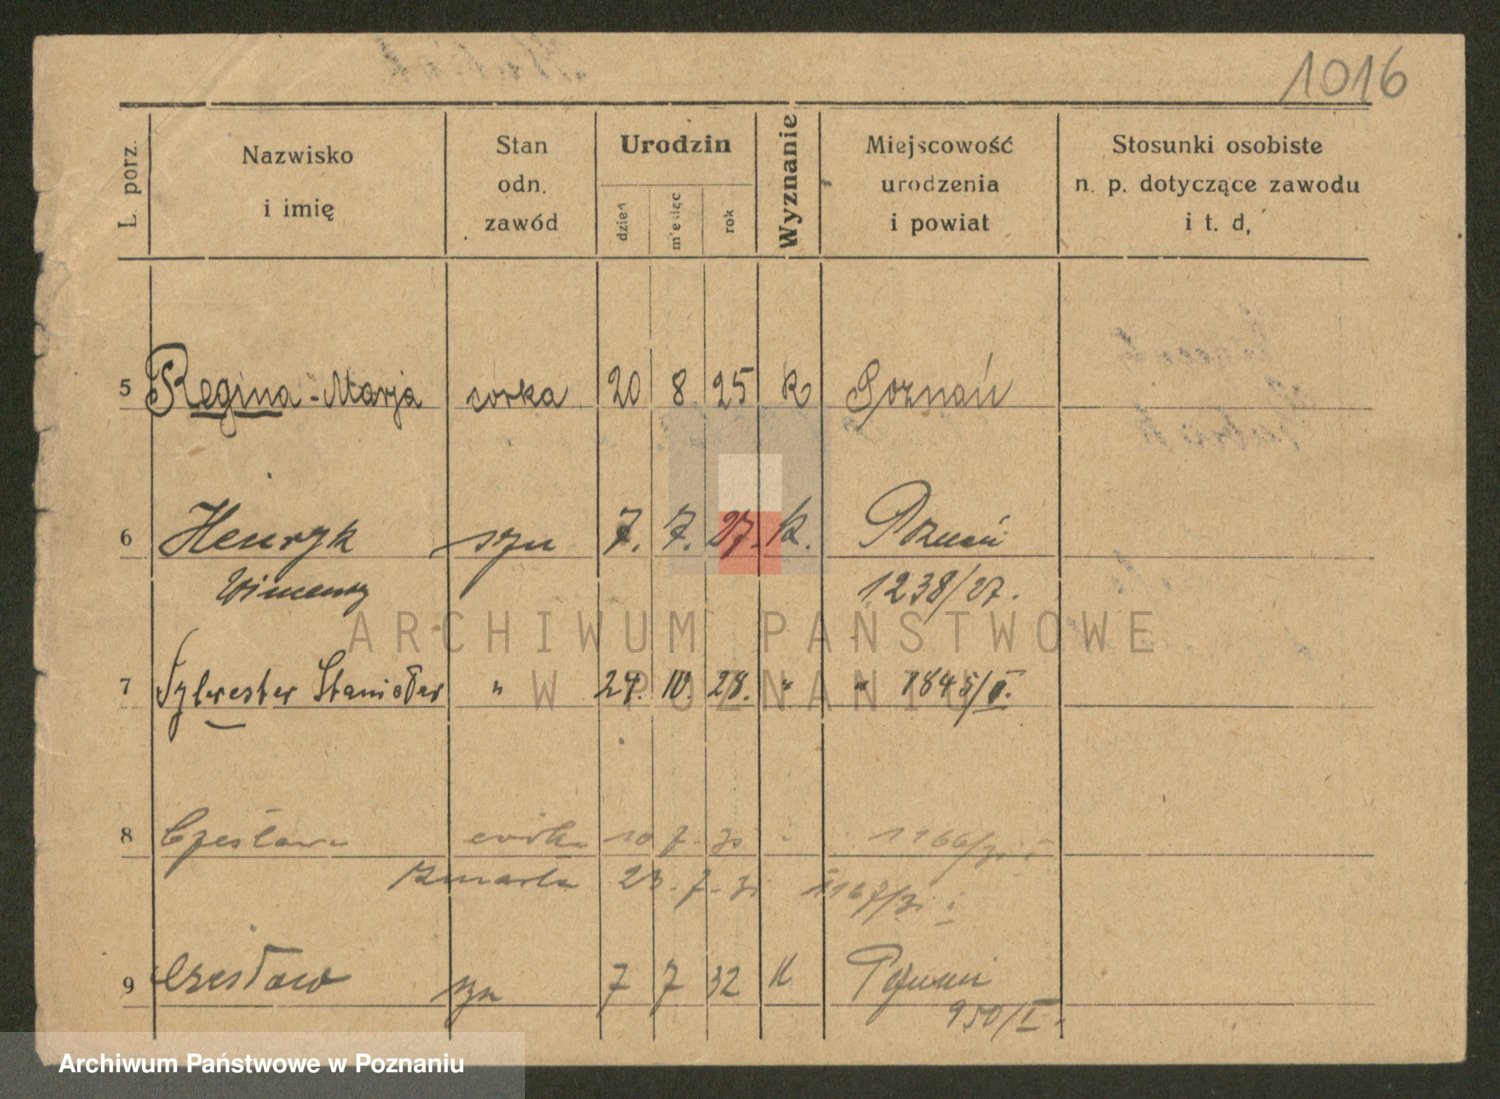 1016
L. porz.
Nazwisko
i imię
Stan
odn.
zawód
Urodzin
dzień
miesiąc
rok
Wyznanie
Miejscowość
urodzenia
i powiat
Stosunki osobiste
n. p. dotyczące zawodu
i t. d.
5 Regina-Marja corka 20 8 25 k Poznań
6 Henryk syn 7. 7. 27. k. Poznań
1238/27.
7 Sylwester " 24. 28. " "
8 Czesława córka 10 7 31 " 1166/31
zmarła 23-7-31 1167/31
9 Czesław syn 7 7 32 k Poznań
950/I.
ARCHIWUM PAŃSTWOWE
W POZNANIU
Archiwum Państwowe w Poznaniu